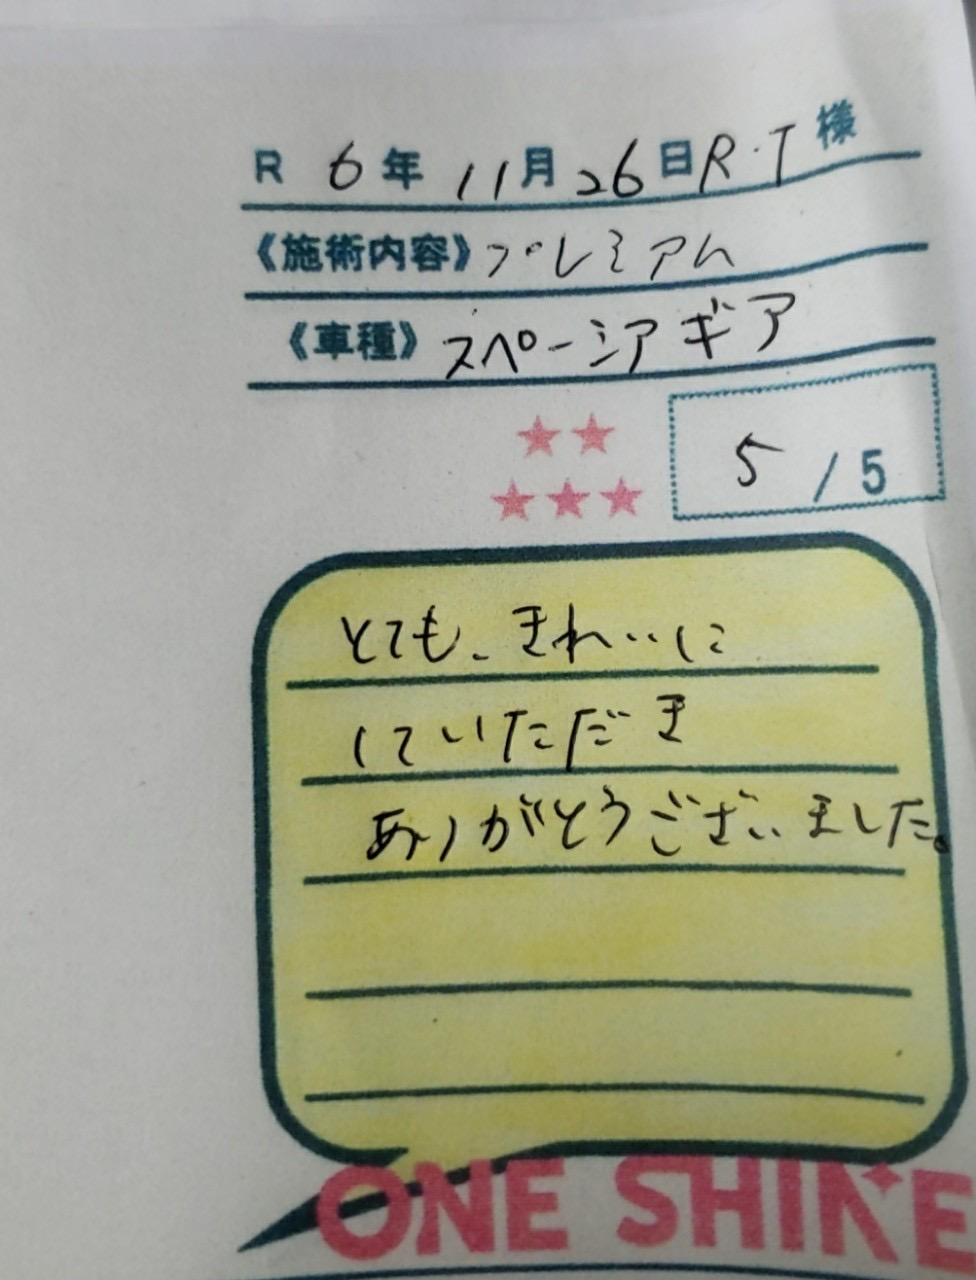 R 6年 11月 26日 R.T 様
《施術内容》プレミアム
《車種》スペーシアギア
★★
★★★
5 / 5
とても、きれいに
していただき
ありがとうございました。
ONE SHINE